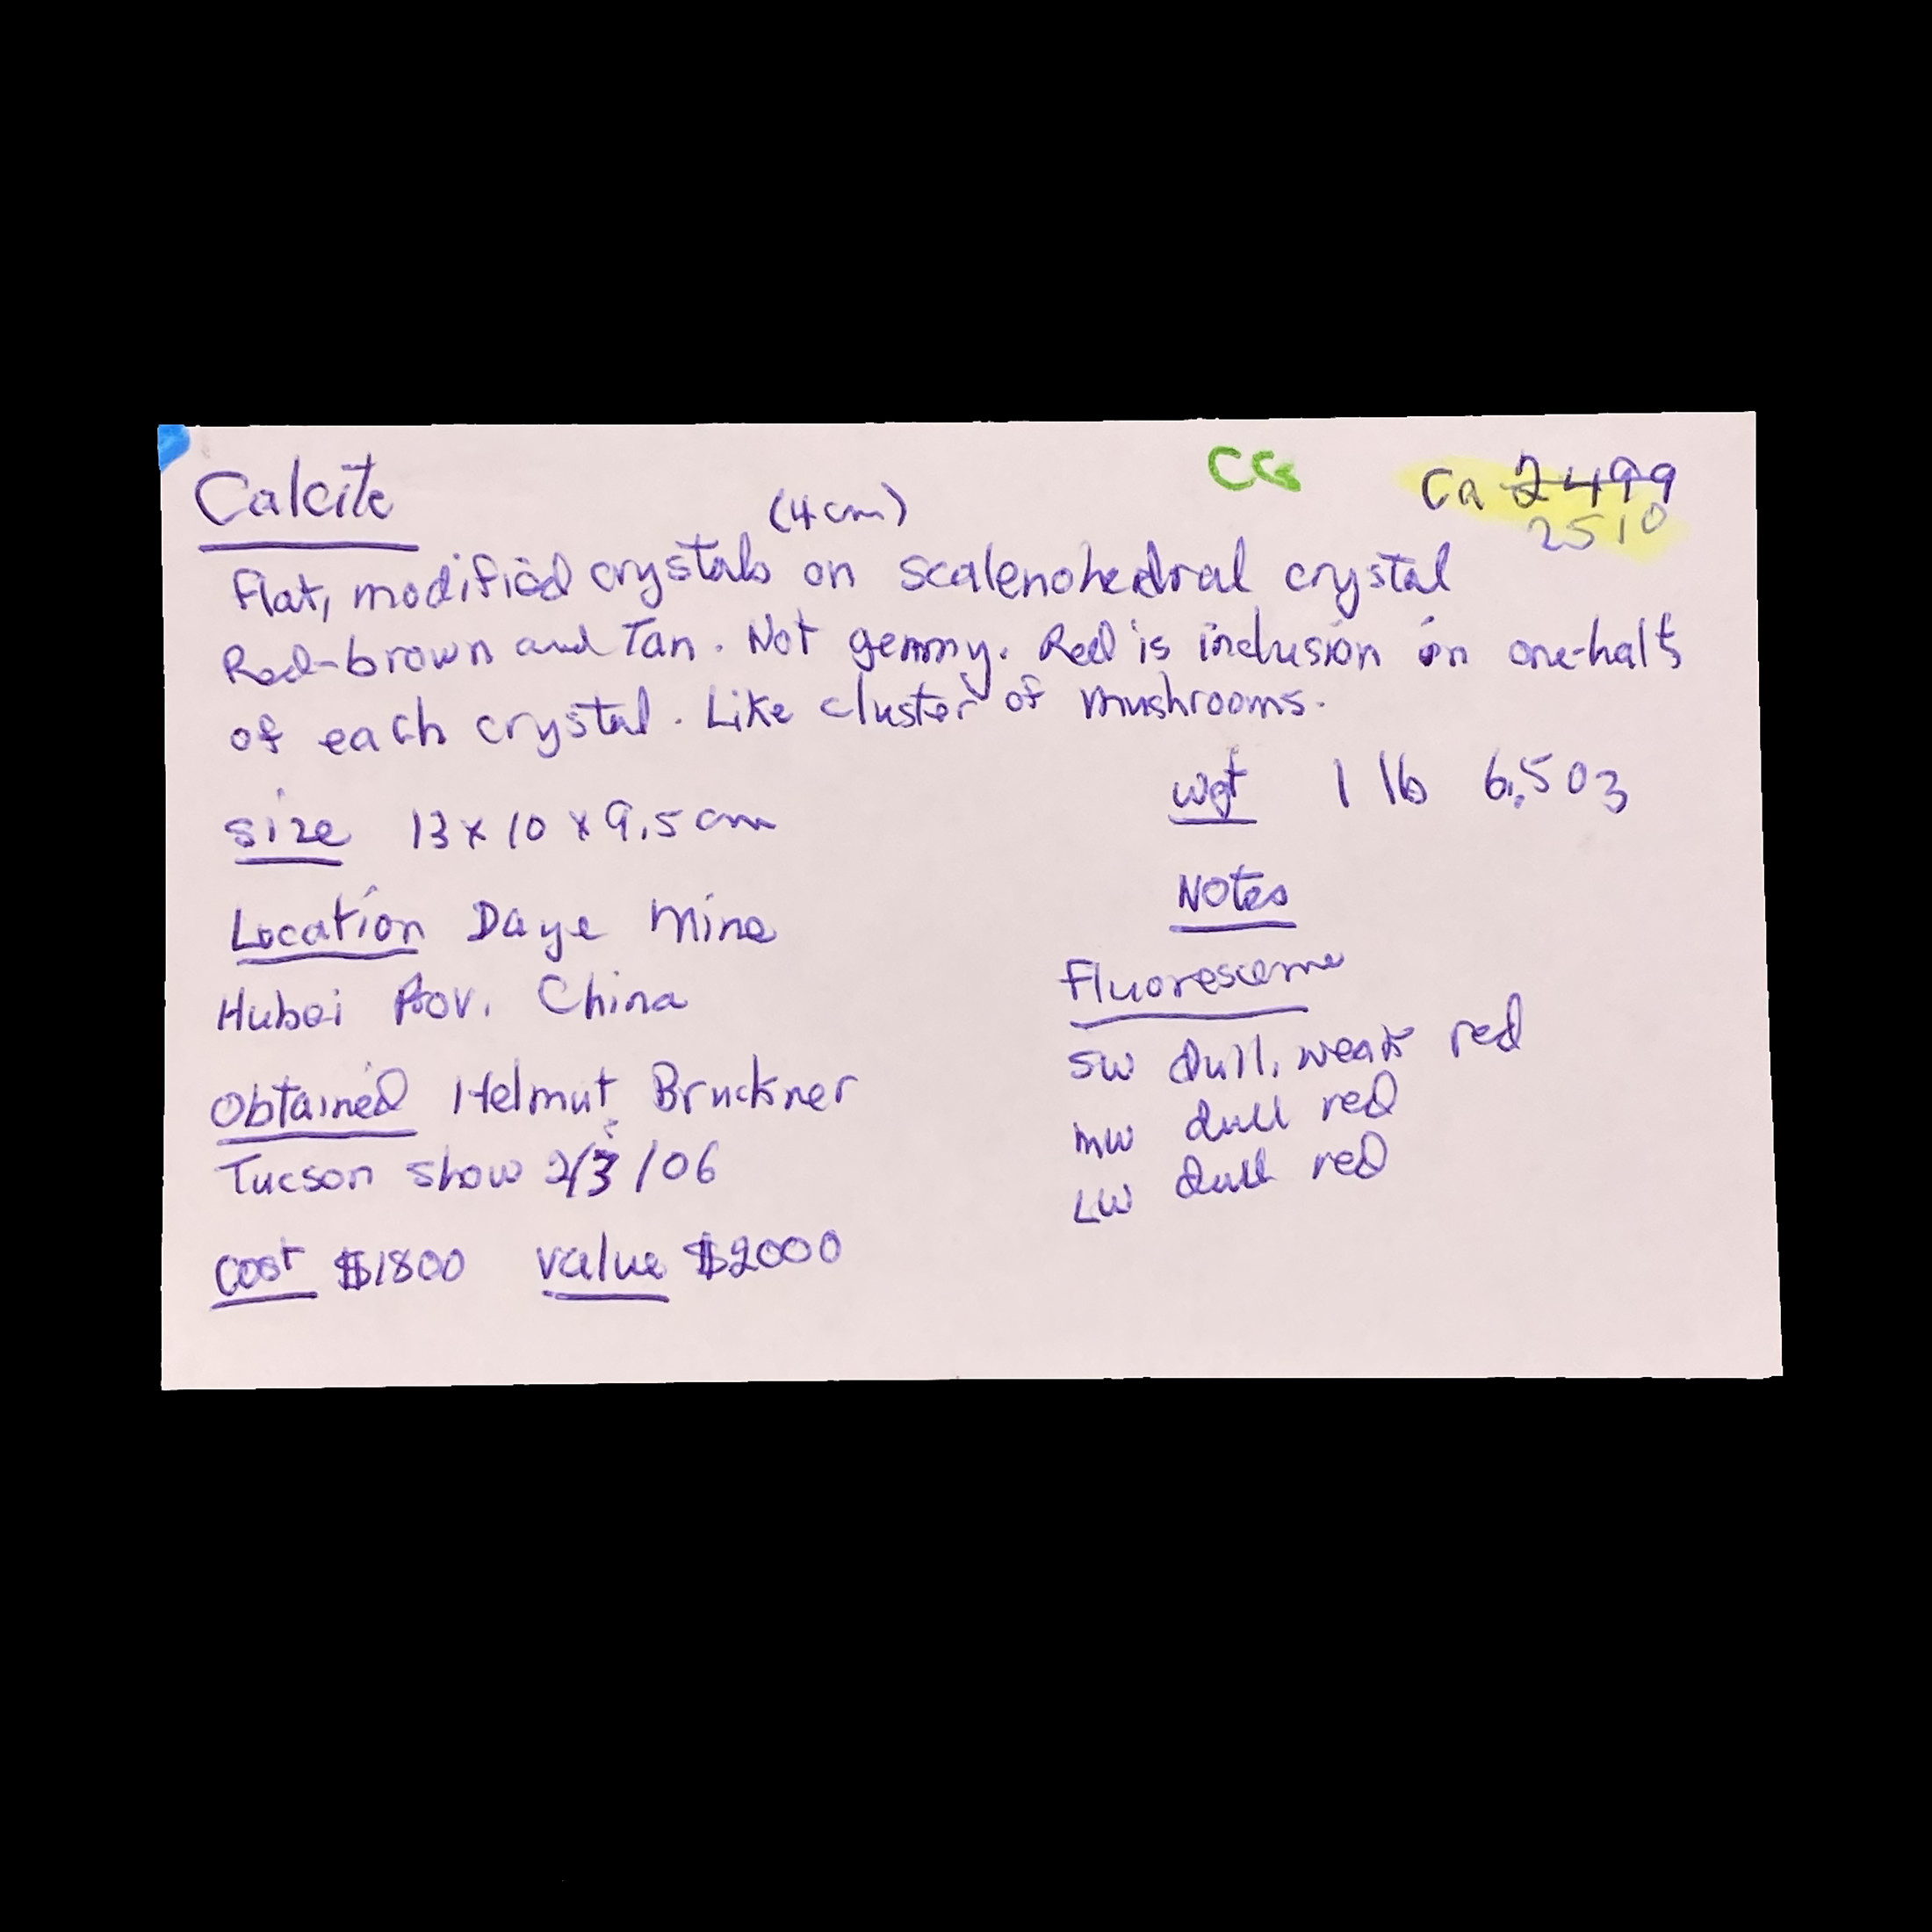 Calcite
(4cm)
CG
Ca 2499
2510
flat, modified crystals on scalenohedral crystal
Red-brown and Tan. Not gemmy. Red is inclusion in one-half
of each crystal. Like cluster of mushrooms.
size 13 x 10 x 9.5 cm
wgt 1 lb 6.5 oz
Location Daye Mine
Notes
Hubei Prov. China
Fluorescence
Obtained Helmut Bruckner
SW dull, weak red
Tucson show 2/3/06
MW dull red
LW dull red
cost $1800 value $2000